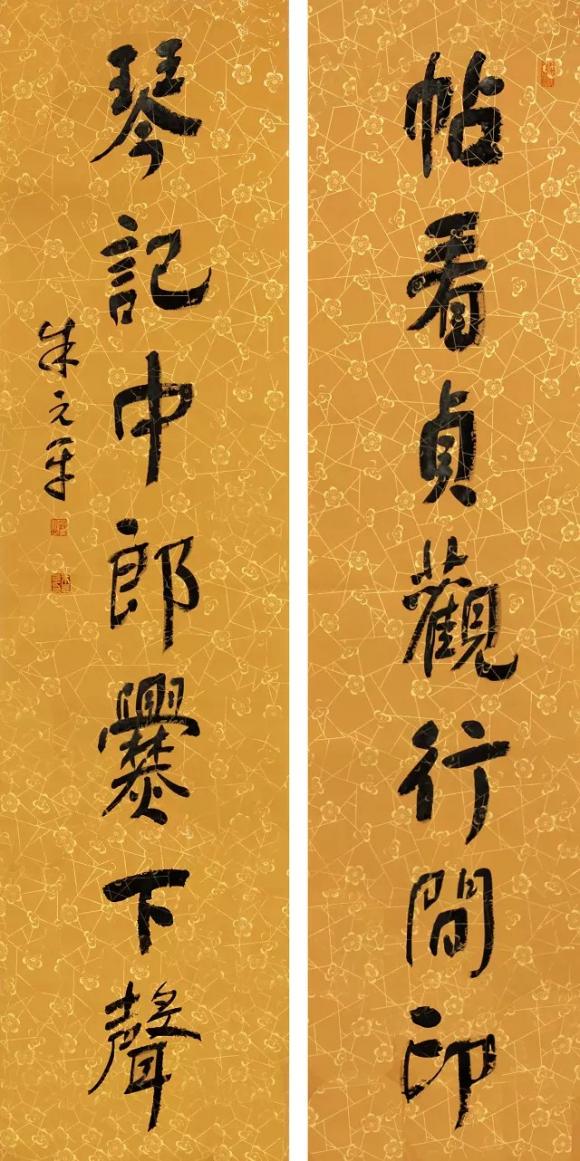 帖看貞觀行間印
琴記中郎爨下聲
朱元